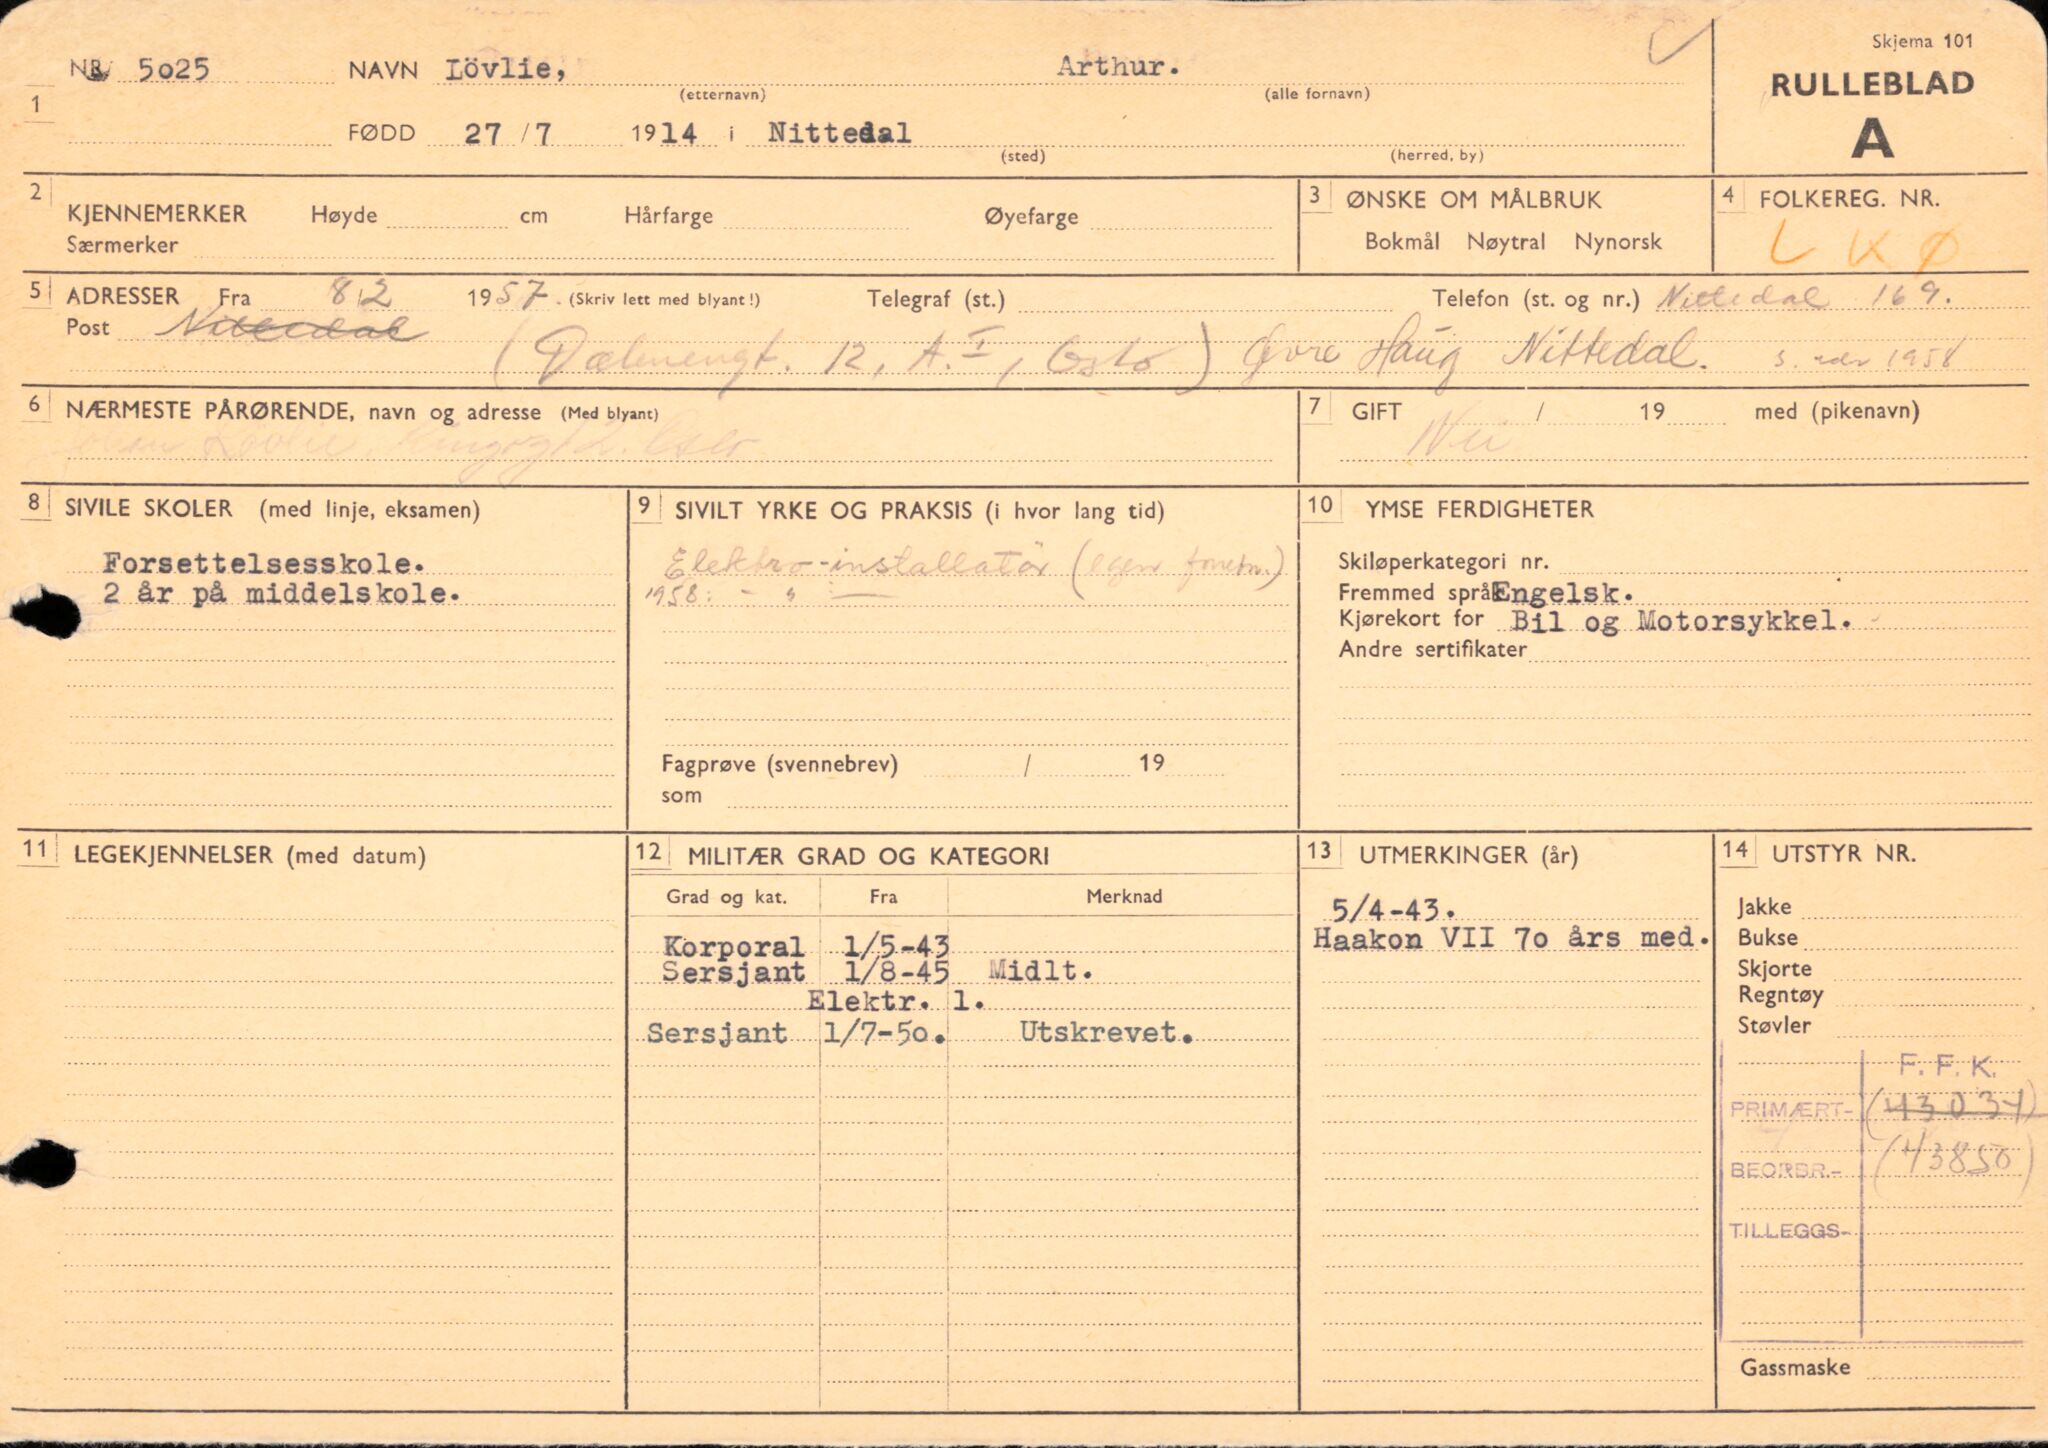 Skjema 101
NR 5025 NAVN Lövlie, Arthur.
(etternavn) (alle fornavn)
RULLEBLAD
A
1
FØDD 27 / 7 1914 i Nittedal
(sted) (herred, by)
2 KJENNEMERKER Høyde cm Hårfarge Øyefarge
Særmerker
3 ØNSKE OM MÅLBRUK
Bokmål Nøytral Nynorsk
4 FOLKEREG. NR.
L K Ø
5 ADRESSER Fra 8/2 1957. (Skriv lett med blyant!) Telegraf (st.) Telefon (st. og nr.) Nittedal 169.
Post Nittedal
(Dælenengt. 12, A. I, Oslo) Øvre Haug Nittedal. 1958
6 NÆRMESTE PÅRØRENDE, navn og adresse (Med blyant)
Lövlie, Oslo
7 GIFT / 19 med (pikenavn)
Nei
8 SIVILE SKOLER (med linje, eksamen)
Forsettelsesskole.
2 år på middelskole.
9 SIVILT YRKE OG PRAKSIS (i hvor lang tid)
Elektro-installatör (egen forretn.)
1958: - " -
Fagprøve (svennebrev) / 19
som
10 YMSE FERDIGHETER
Skiløperkategori nr.
Fremmed språk Engelsk.
Kjørekort for Bil og Motorsykkel.
Andre sertifikater
11 LEGEKJENNELSER (med datum)
12 MILITÆR GRAD OG KATEGORI
Grad og kat. Fra Merknad
Korporal 1/5-43
Sersjant 1/8-45 Midlt.
Elektr. 1.
Sersjant 1/7-5o. Utskrevet.
13 UTMERKINGER (år)
5/4-43.
Haakon VII 7o års med.
14 UTSTYR NR.
Jakke
Bukse
Skjorte
Regntøy
Støvler
F. F. K.
PRIMÆRT- (43034)
BEORBR.- (43850)
TILLEGGS-
Gassmaske